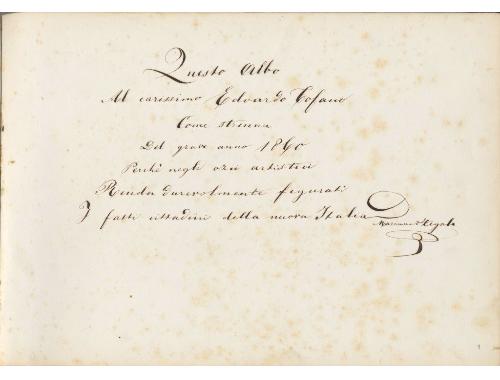 Questo Albo
Al carissimo Edoardo Tofano
Come strenna
Del grave anno 1860
Perchè negli ozii artistici
Renda durevolmente figurati
I fatti cittadini della nuova Italia
d'Ayala